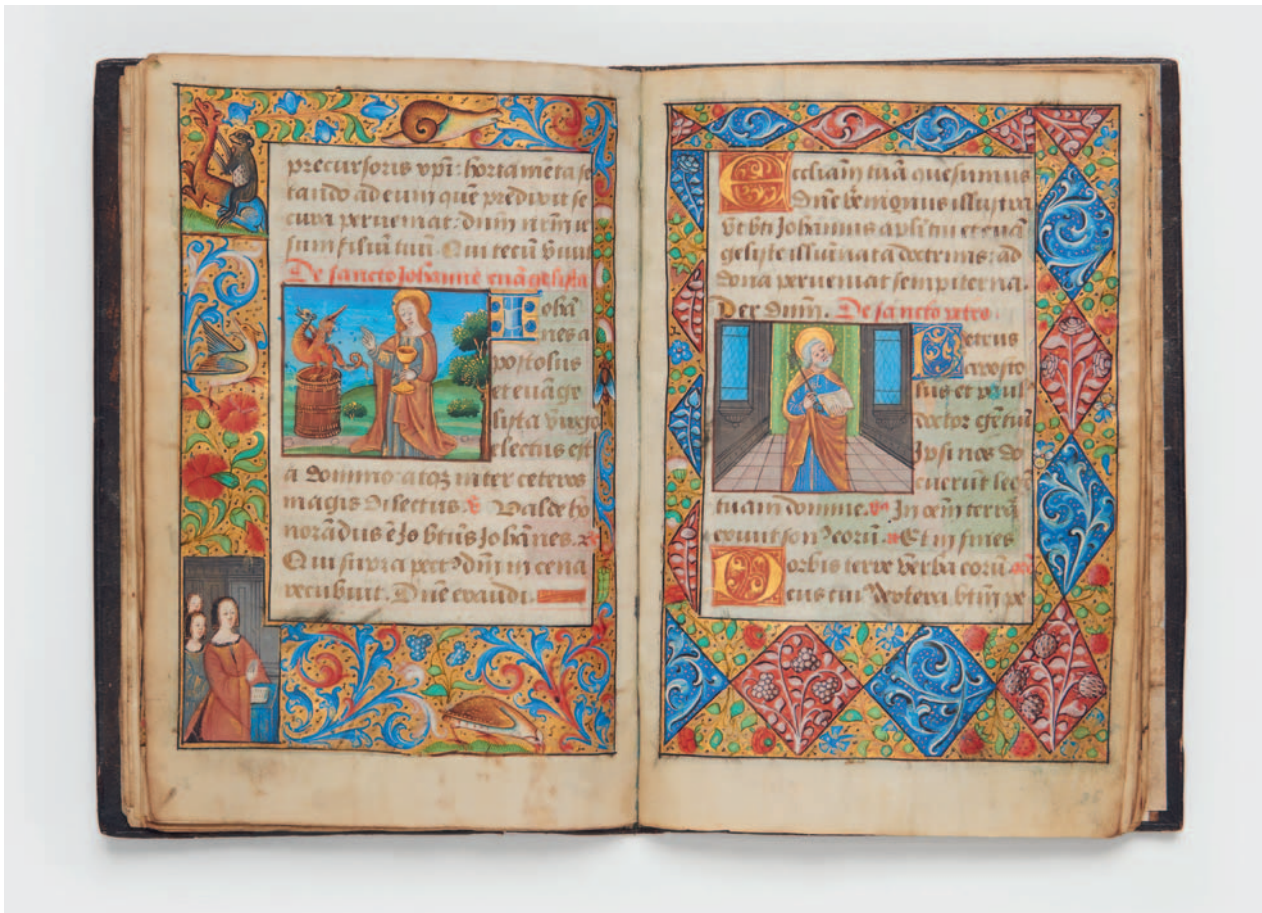 precursoris xpi: hortamēta se
tando ad eum quē predixit se
curа perueniat: dnm nrm ie
sum filiū tuū. Qui tecū viuit
De sancto Johanne euāgelista
Johā
nes a
postolus
et euāge
lista virgo
electus est
a domino atqz inter ceteros
magis dilectus. Valde ho
norādus ē
btūs Johānes.
Qui supra pectꝰ dñi in cena
recubuit. Dñe exaudi.
Ecclesiam tuā quesumus
Dñe benignus illustra
vt bti Johannis apli tui et euā
geliste illuminata doctrinis: ad
dona perueniat sempiterna.
Per dñm. De sancto petro.
Petrus
aposto
lus et paulꝰ
doctor gētiū
Ipsi nos do
cuerūt legē
tuam domine. In oēm terrā
exiuit sonꝰ eorū. Et in fines
orbis terre verba eorū.
Deus cui dextera btm pe
26